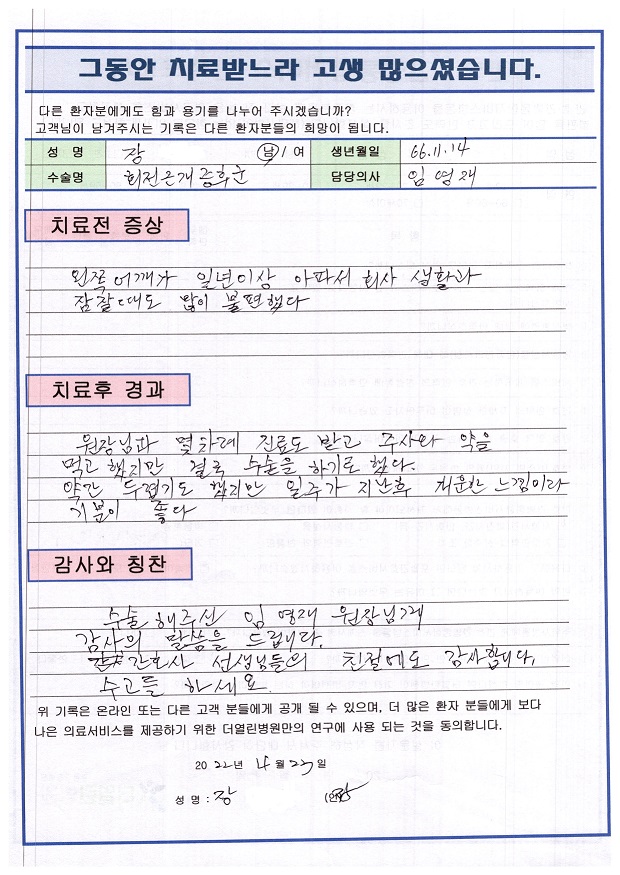 그동안 치료받느라 고생 많으셨습니다.
다른 환자분에게도 힘과 용기를 나누어 주시겠습니까?
고객님이 남겨주시는 기록은 다른 환자분들의 희망이 됩니다.
성 명 장 남 / 여 생년월일 66.11.14
수술명 회전근개증후군 담당의사 임영재
치료전 증상
왼쪽 어깨가 일년이상 아파서 회사 생활과
잠잘때도 많이 불편했다
치료후 경과
원장님과 몇차례 진료도 받고 주사와 약을
먹고 했지만 결국 수술을 하기로 했다.
약간 두렵기도 했지만 일주가 지난후 개운한 느낌이라
기분이 좋다
감사와 칭찬
수술해주신 임영재 원장님게
감사의 말씀을 드립니다.
간호사 선생님들의 친절에도 감사합니다.
수고들 하세요.
위 기록은 온라인 또는 다른 고객 분들에게 공개 될 수 있으며, 더 많은 환자 분들에게 보다
나은 의료서비스를 제공하기 위한 더열린병원만의 연구에 사용 되는 것을 동의합니다.
2022년 4월 23일
성 명 : 장 (인)